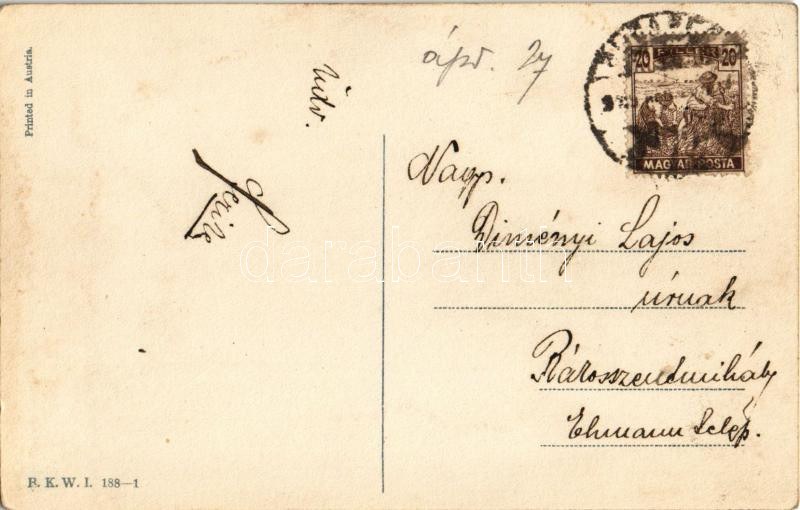 Printed in Austria.
Üdv.
ápr. 27
20 FILLÉR 20
MAGYAR POSTA
Nagys.
Diményi Lajos
úrnak
Rákosszentmihály
Ehmann telep.
darabanth
B. K. W. I. 188—1